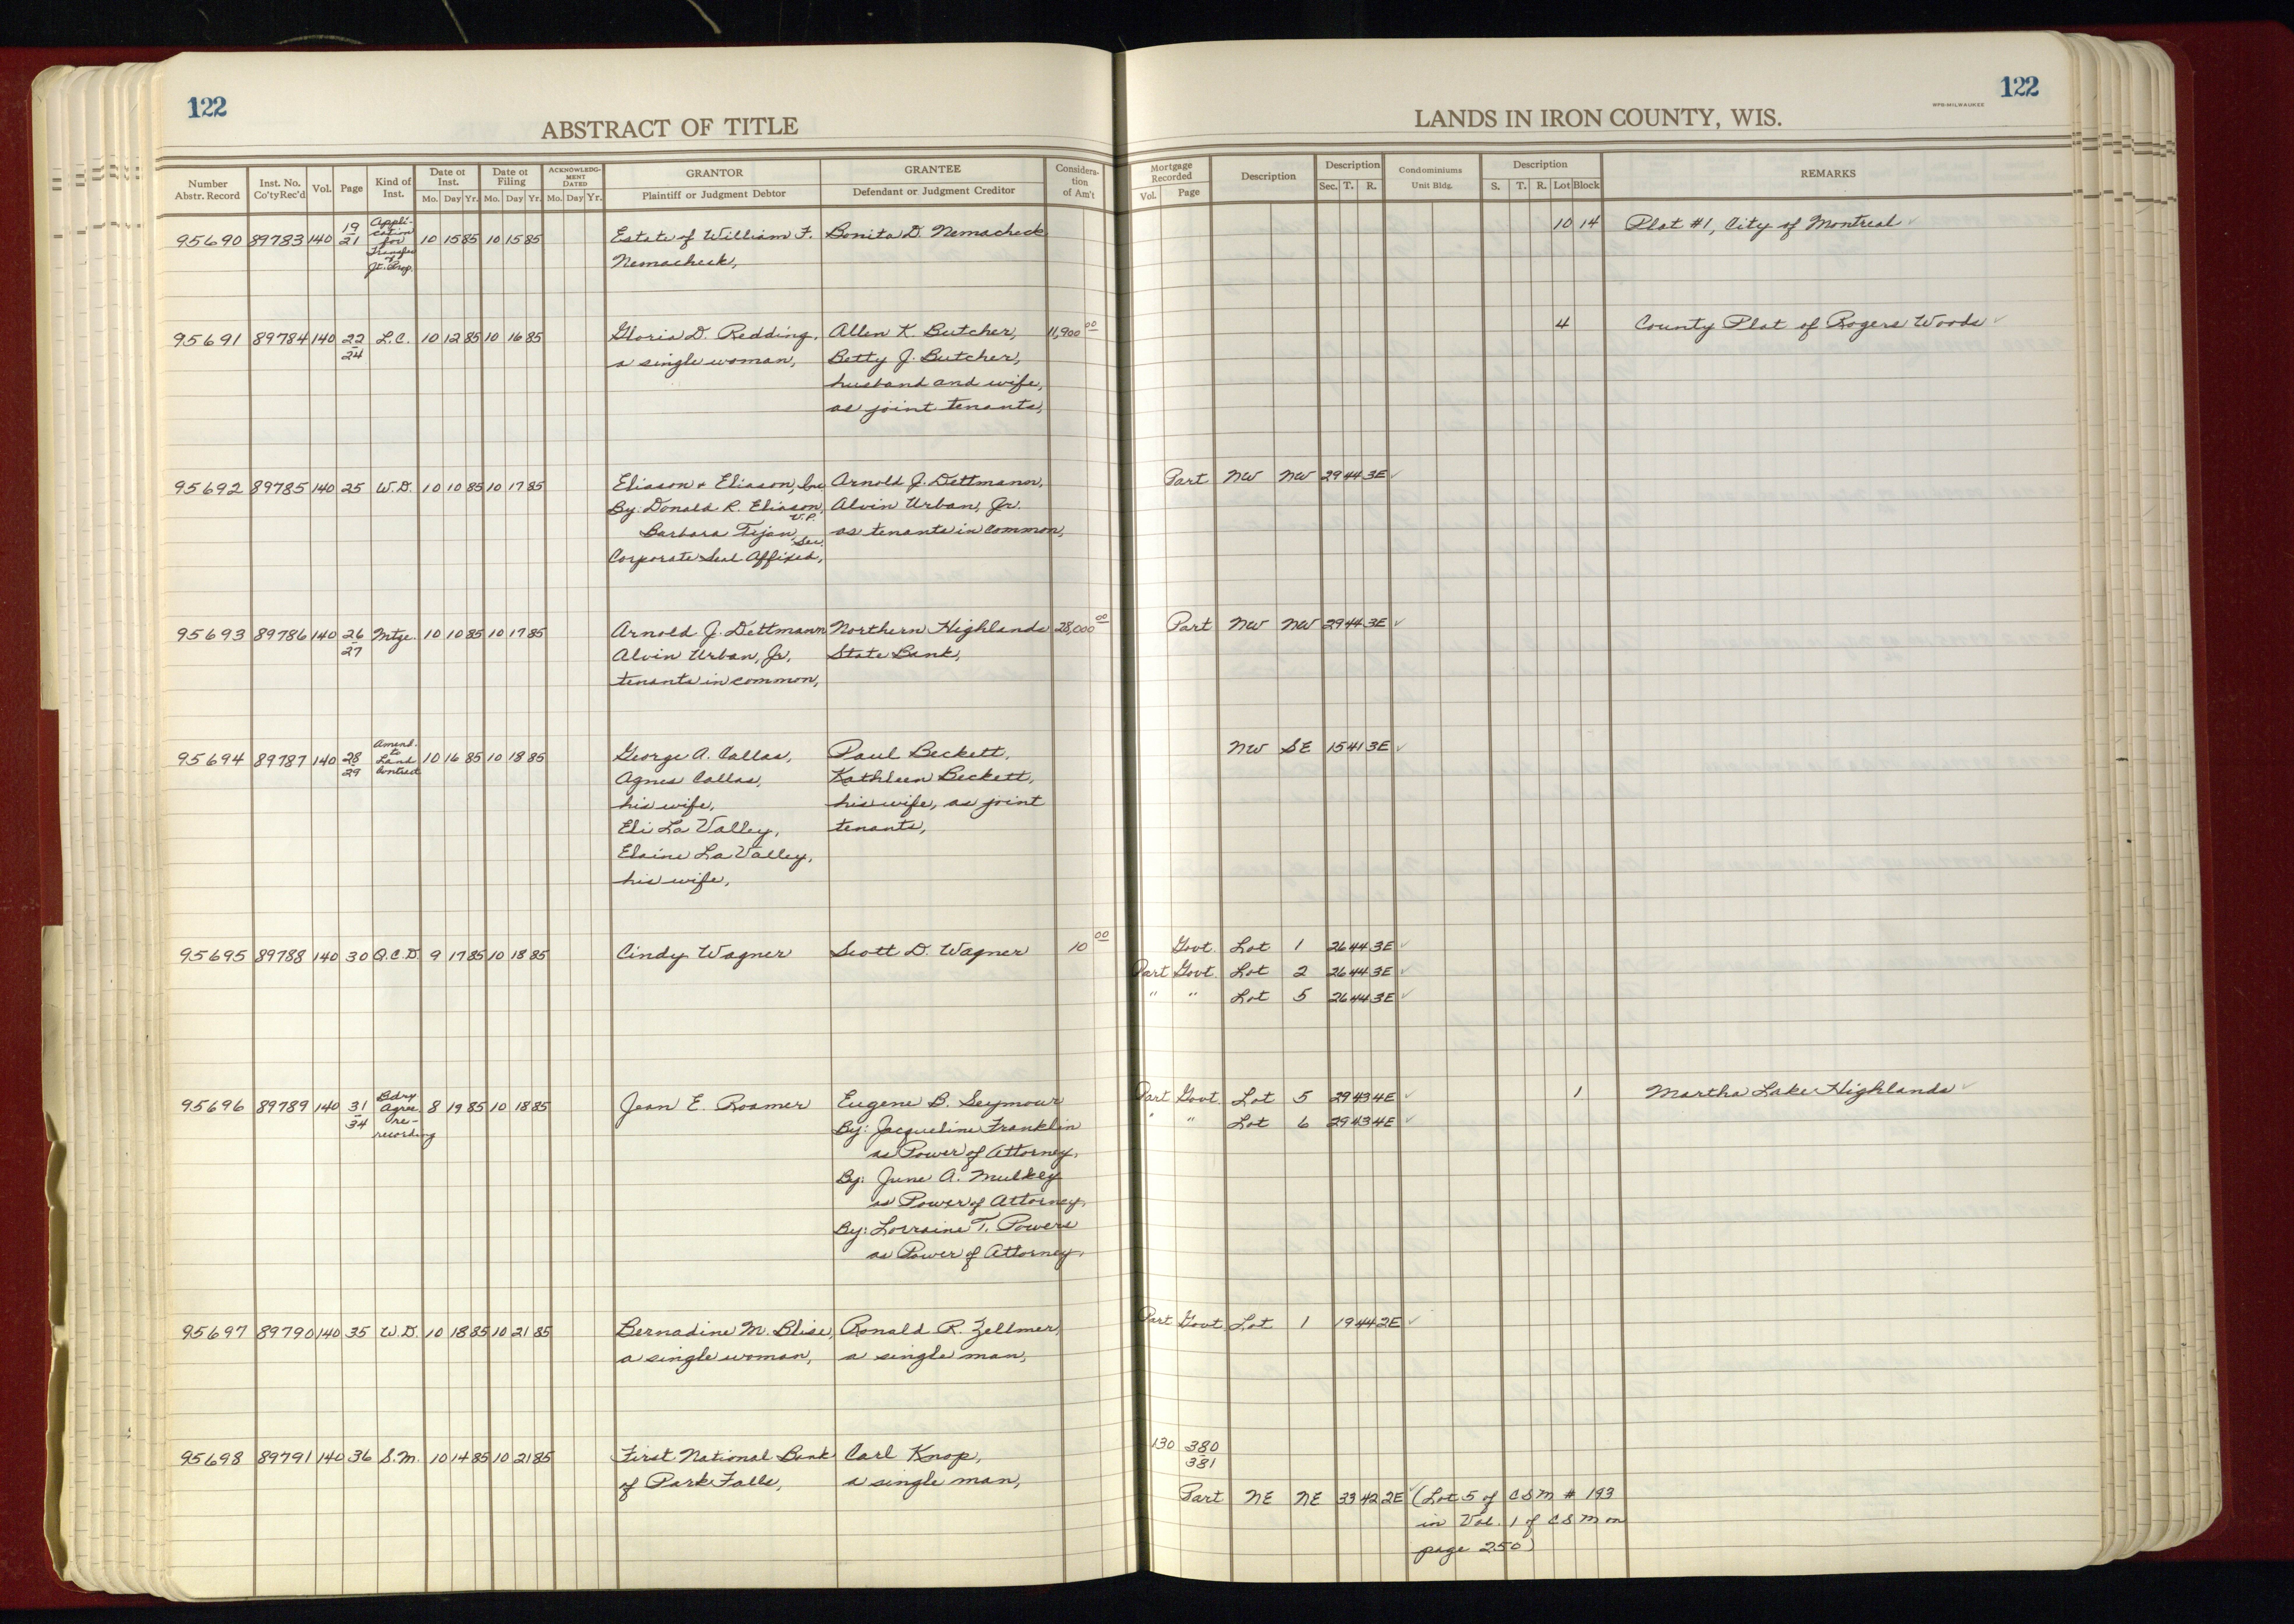 122
ABSTRACT OF TITLE
Number Abstr. Record | Inst. No. Co'ty Rec'd | Vol. | Page | Kind of Inst. | Date of Inst. Mo. Day Yr. | Date of Filing Mo. Day Yr. | ACKNOWLEDGMENT DATED Mo. Day Yr. | GRANTOR Plaintiff or Judgment Debtor | GRANTEE Defendant or Judgment Creditor | Consideration of Am't
95690 89783 140 19/21 Application for Transfer of Jt. Prop. 10 15 85 10 15 85 Estate of William F. Bonita D. Nemacheck
Nemacheck,
95691 89784 140 22/24 L.C. 10 12 85 10 16 85 Gloria D. Redding, Allen K. Butcher, 11,900 00
a single woman, Betty J. Butcher,
husband and wife,
as joint tenants,
95692 89785 140 25 W.D. 10 10 85 10 17 85 Eliason + Eliason, Inc Arnold J. Dettmann,
By: Donald R. Eliason, V.P. Alvin Urban, Jr.
Barbara Tijan, Sec. as tenants in common,
Corporate Seal Affixed,
95693 89786 140 26/27 Mtge. 10 10 85 10 17 85 Arnold J. Dettmann Northern Highlands 28,000 00
Alvin Urban, Jr, State Bank,
tenants in common,
95694 89787 140 28/29 Amend. to Land Contract 10 16 85 10 18 85 George A. Callas, Paul Beckett,
Agnes Callas, Kathleen Beckett,
his wife, his wife, as joint
Eli La Valley, tenants,
Elaine La Valley,
his wife,
95695 89788 140 30 Q.C.D. 9 17 85 10 18 85 Cindy Wagner Scott D. Wagner 10 00
95696 89789 140 31/34 Bdry Agree re-recording 8 19 85 10 18 85 Jean E. Roamer Eugene B. Seymour
By: Jacqueline Franklin
as Power of Attorney,
By: June A. Mulkey
as Power of Attorney,
By: Lorraine T. Powers
as Power of Attorney,
95697 89790 140 35 W.D. 10 18 85 10 21 85 Bernadine M. Blise, Ronald R. Zellmer,
a single woman, a single man,
95698 89791 140 36 S.M. 10 14 85 10 21 85 First National Bank Carl Knop,
of Park Falls, a single man,
122
WPG-MILWAUKEE
LANDS IN IRON COUNTY, WIS.
Mortgage Recorded Vol. Page | Description | Description Sec. T. R. | Condominiums Unit Bldg. | Description S. T. R. Lot Block | REMARKS
10 14 Plat #1, City of Montreal ✓
4 County Plat of Rogers Woods ✓
Part NW NW 29 44 3E ✓
Part NW NW 29 44 3E ✓
NW SE 15 41 3E ✓
Govt. Lot 1 26 44 3E ✓
Part Govt. Lot 2 26 44 3E ✓
" " Lot 5 26 44 3E ✓
Part Govt. Lot 5 29 43 4E ✓ 1 Martha Lake Highlands ✓
" " Lot 6 29 43 4E ✓
Part Govt. Lot 1 19 44 2E ✓
130 380/381
Part NE NE 33 42 2E ✓ (Lot 5 of CSM # 193
in Vol. 1 of CSM on
page 250)